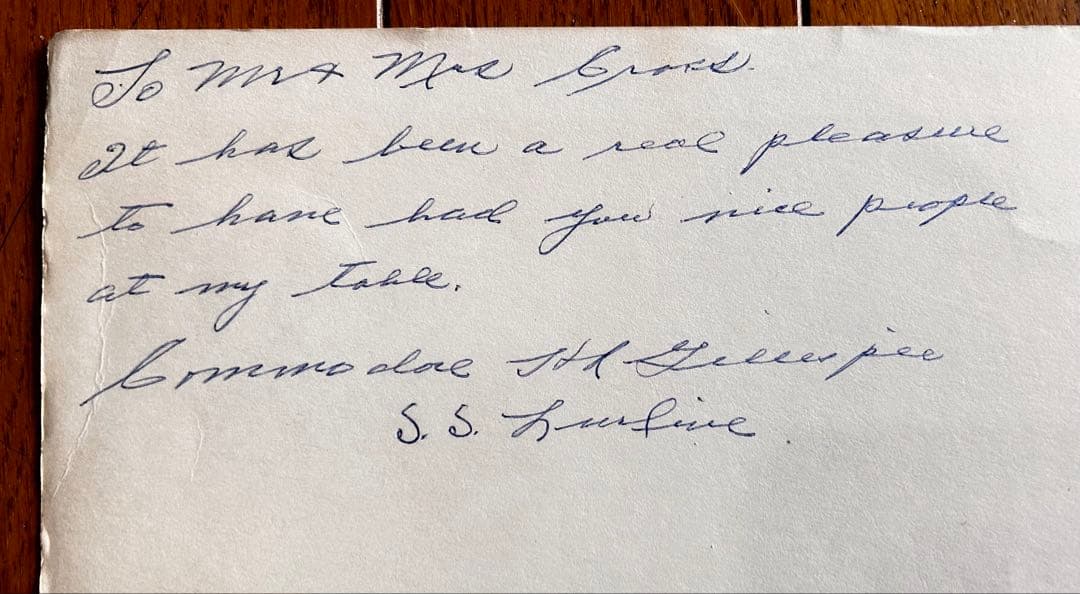 To Mr & Mrs Cross.
It has been a real pleasure
to have had you nice people
at my table.
Commodore HR Gillespie
S.S. Lurline.